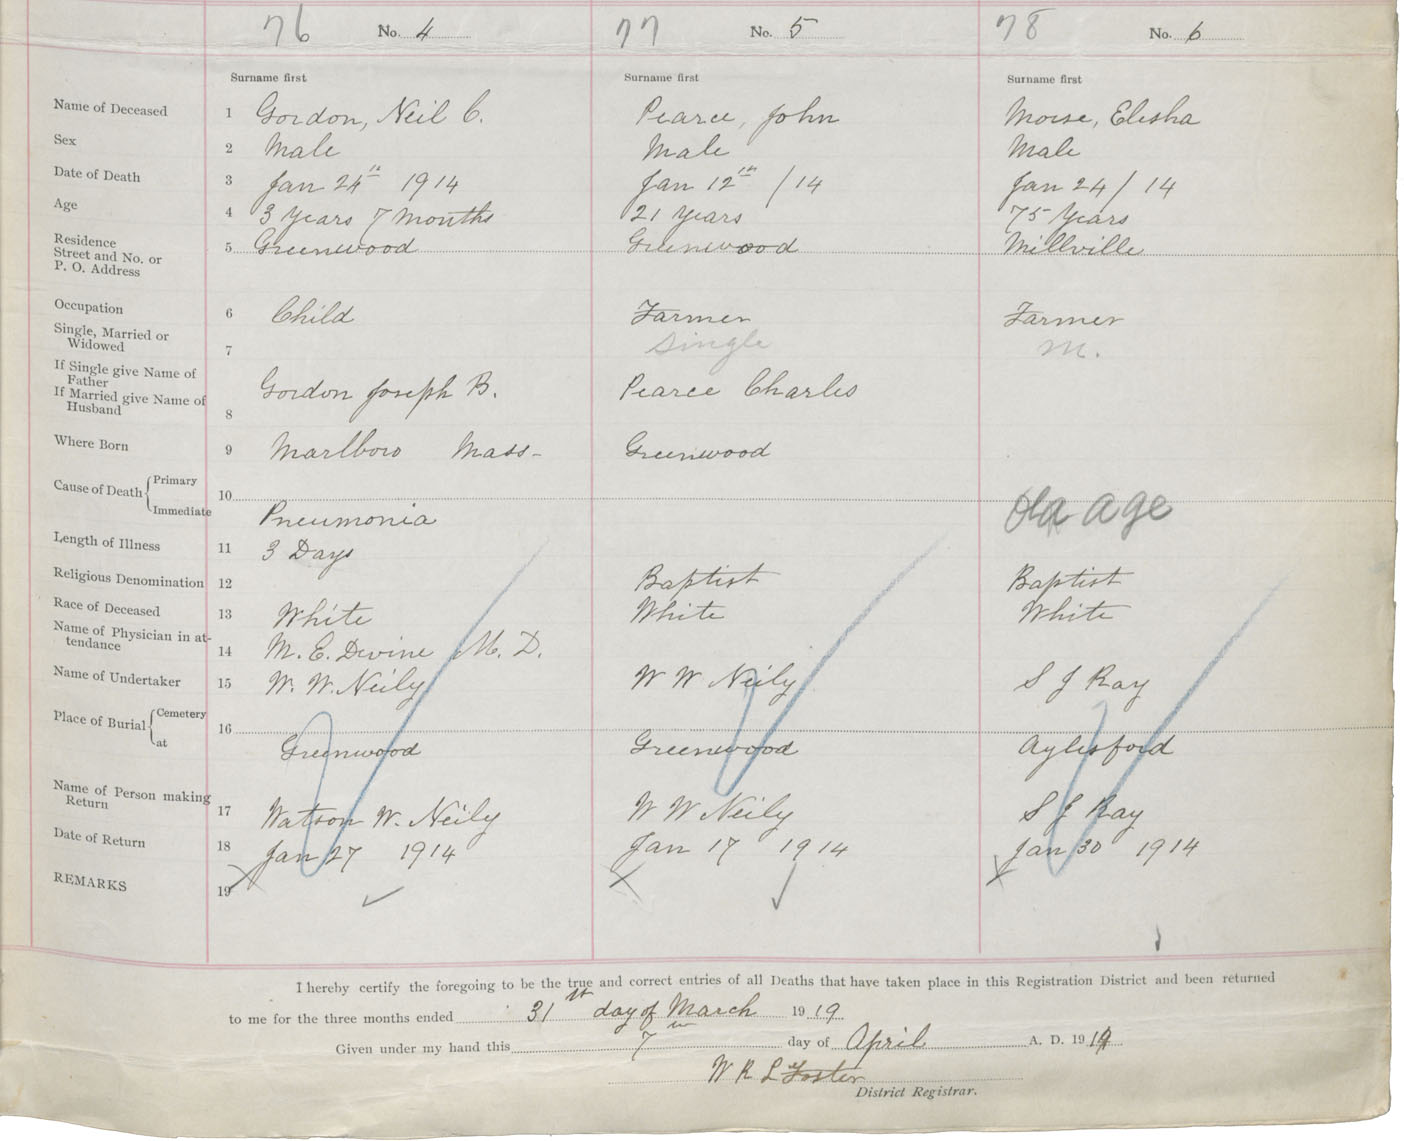 76 No. 4 77 No. 5 78 No. 6
Surname first Surname first Surname first
Name of Deceased 1 Gordon, Neil C. Pearce, John Morse, Elesha
Sex 2 Male Male Male
Date of Death 3 Jan 24th 1914 Jan 12th /14 Jan 24/14
Age 4 3 Years 7 Months 21 Years 75 Years
Residence
Street and No. or 5 Greenwood Greenwood Millville
P. O. Address
Occupation 6 Child Farmer Farmer
Single, Married or
Widowed 7 Single M.
If Single give Name of
Father
If Married give Name of Gordon Joseph B. Pearce Charles
Husband 8
Where Born 9 Marlboro Mass- Greenwood
Cause of Death { Primary 10
Immediate Pneumonia Old age
Length of Illness 11 3 Days
Religious Denomination 12 Baptist Baptist
Race of Deceased 13 White White White
Name of Physician in at-
tendance 14 M. E. Devine M. D.
Name of Undertaker 15 W. W. Neily W W Neily S J Ray
Place of Burial { Cemetery 16
at Greenwood Greenwood Aylesford
Name of Person making
Return 17 Watson W. Neily W W Neily S J Ray
Date of Return 18 Jan 27 1914 Jan 17 1914 Jan 30 1914
REMARKS 19
I hereby certify the foregoing to be the true and correct entries of all Deaths that have taken place in this Registration District and been returned
to me for the three months ended 31st day of March 1919
Given under my hand this 7th day of April A. D. 1914
W R L Foster
District Registrar.